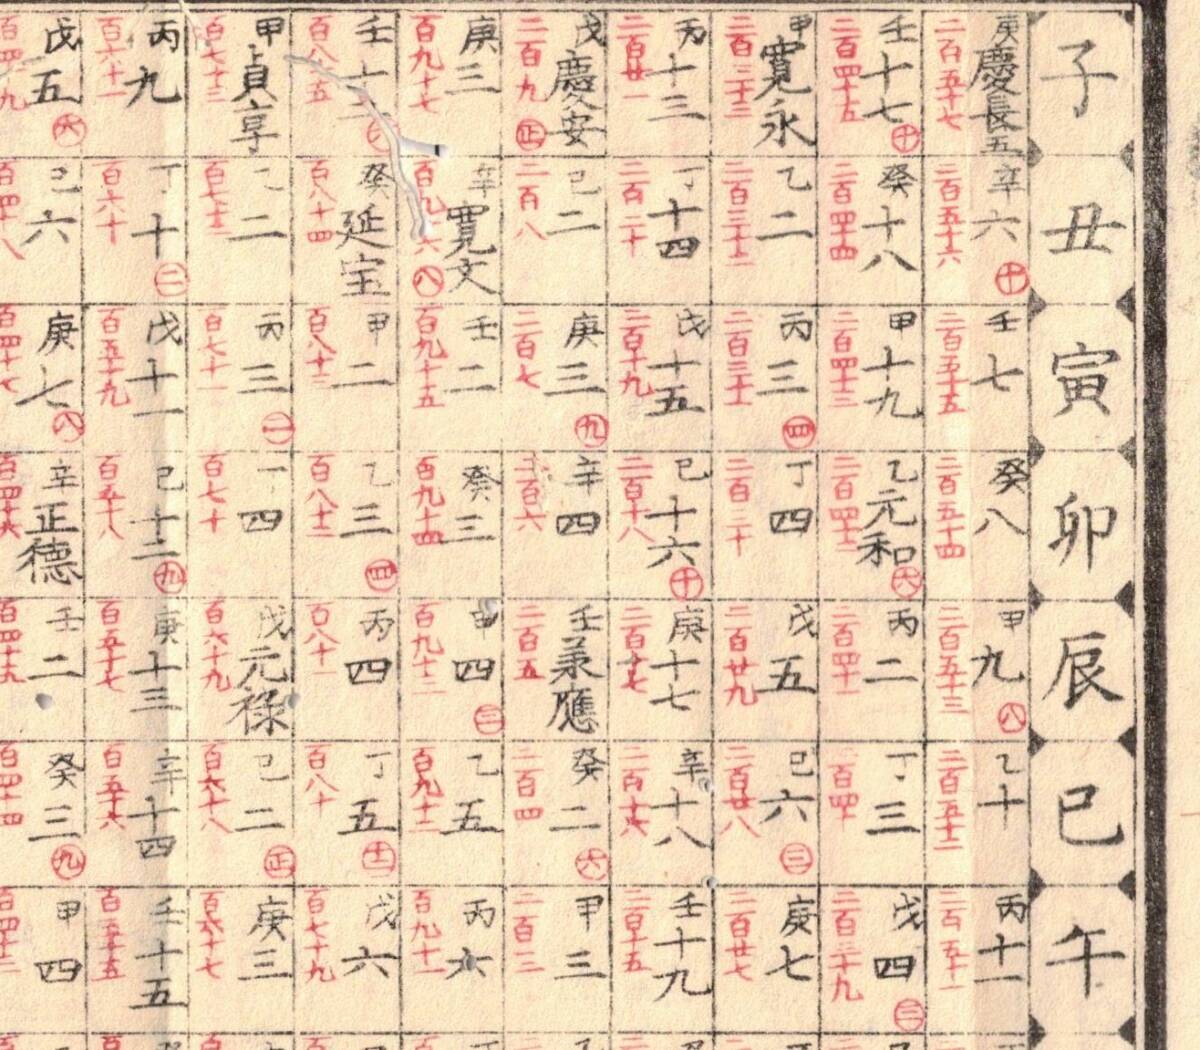 子
丑
寅
卯
辰
巳
午
庚 慶長五
二百五十七
辛 六 十
二百五十六
壬 七
二百五十五
癸 八
二百五十四
甲 九 八
二百五十三
乙 十
二百五十二
丙 十一
二百五十一
壬 十七 十
二百四十五
癸 十八
二百四十四
甲 十九
二百四十三
乙 元和 六
二百四十二
丙 二
二百四十一
丁 三
二百四十
戊 四 三
二百三十九
甲 寛永
二百三十三
乙 二
二百三十二
丙 三 四
二百三十一
丁 四
二百三十
戊 五
二百廿九
己 六 三
二百廿八
庚 七
二百廿七
丙 十三
二百廿一
丁 十四
二百二十
戊 十五
二百十九
己 十六 十
二百十八
庚 十七
二百十七
辛 十八
二百十六
壬 十九
二百十五
戊 慶安 正
二百九
己 二
二百八
庚 三 九
二百七
辛 四
二百六
壬 承應
二百五
癸 二 六
二百四
甲 三
二百三
庚 三
百九十七
辛 寛文 八
百九十六
壬 二
百九十五
癸 三
百九十四
甲 四 三
百九十三
乙 五
百九十二
丙 六
百九十一
壬 十二
百八十五
癸 延宝
百八十四
甲 二
百八十三
乙 三 四
百八十二
丙 四
百八十一
丁 五 十二
百八十
戊 六
百七十九
甲 貞享
百七十三
乙 二
百七十二
丙 三 二
百七十一
丁 四
百七十
戊 元禄
百六十九
己 二 正
百六十八
庚 三
百六十七
丙 九
百六十一
丁 十 二
百六十
戊 十一
百五十九
己 十二 九
百五十八
庚 十三
百五十七
辛 十四
百五十六
壬 十五
百五十五
戊 五 六
百四十九
己 六
百四十八
庚 七 八
百四十七
辛 正徳
百四十六
壬 二
癸 三 九
百四十四
甲 四
百四十三